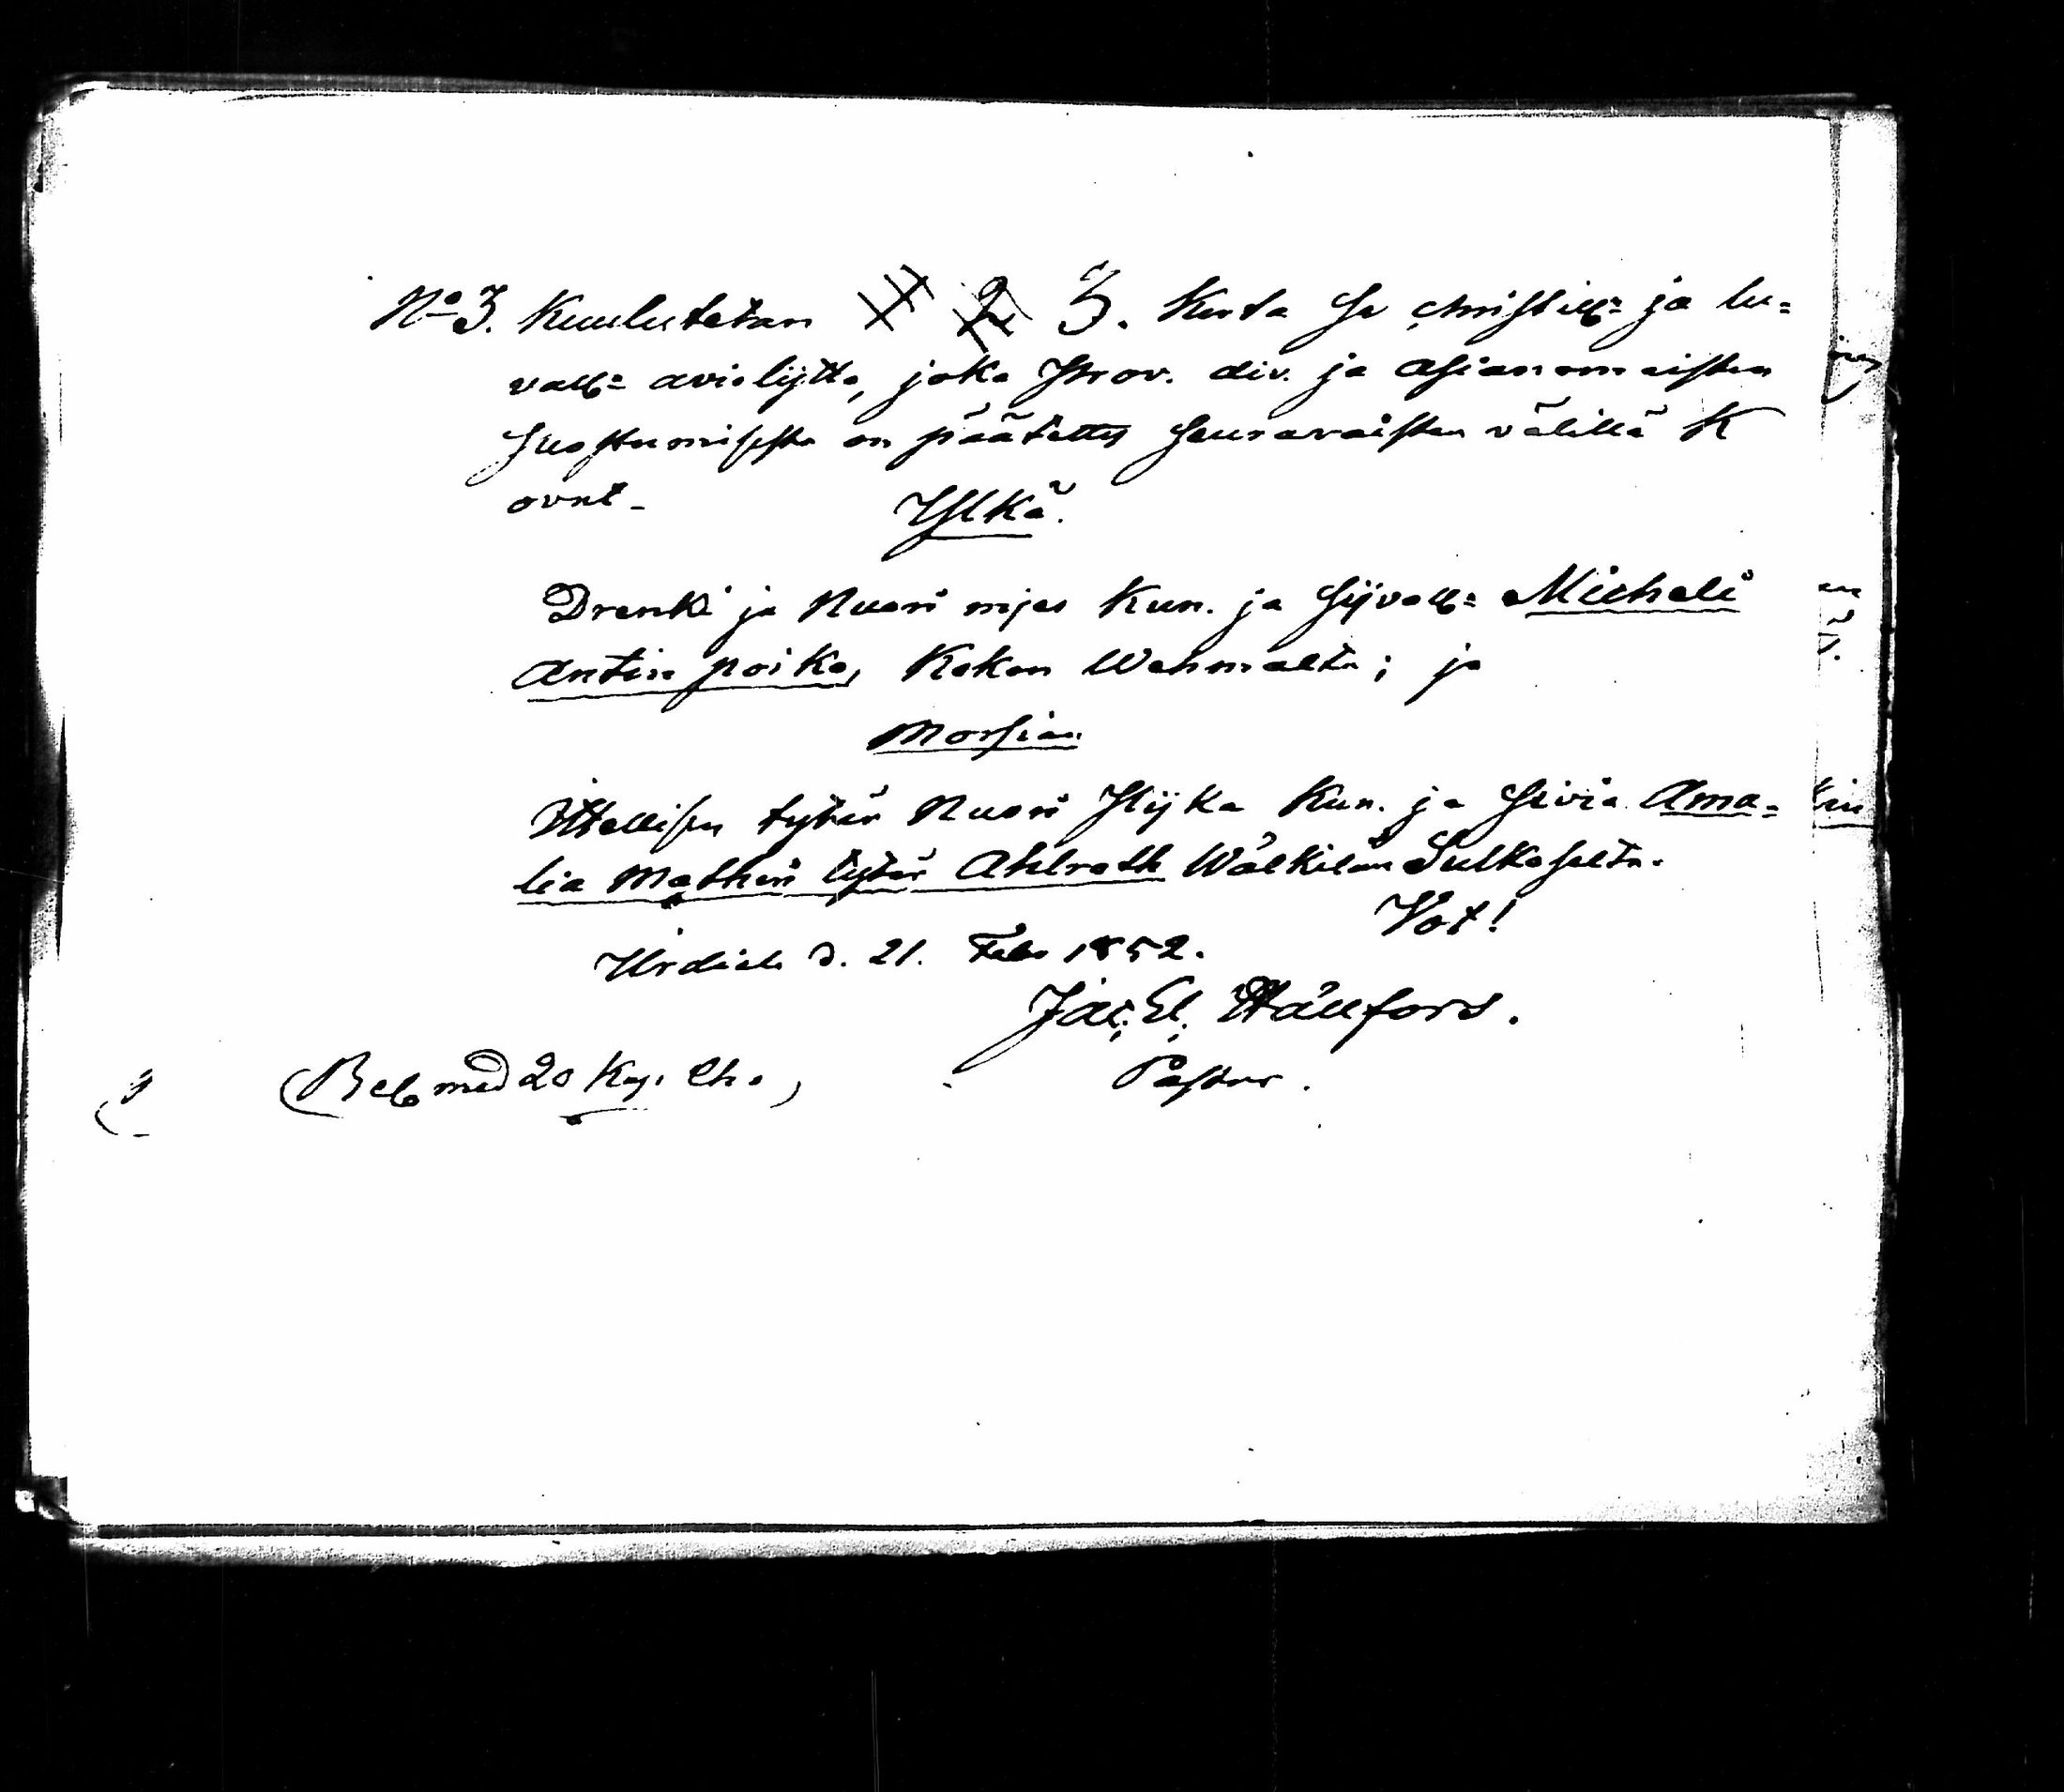 No 3. Kuulutetan 1 2 3. Kerta se christill= ja lu=
vall= avioliitto, joka Prov. div. ja asianomaisten
suostumisesta on päätetty seuraavaisten välillä K
ovnt- Ylkä.
Drenki ja Nuori mjes Kun. ja Sijvoll= Micheli
Antin poika, Kakon Wehmalta; ja
Morsian
Ittellisen tytär Nuori Pijka Kun. ja Sivia Ama=
lia Mathin tytär Ahlroth Wälkilän Sulkasalta.
Vot!
Urdiala d. 21. Febr 1852.
Jac. El. Hällfors.
(Bel. med 20 Kop. Ch.) Pastor.